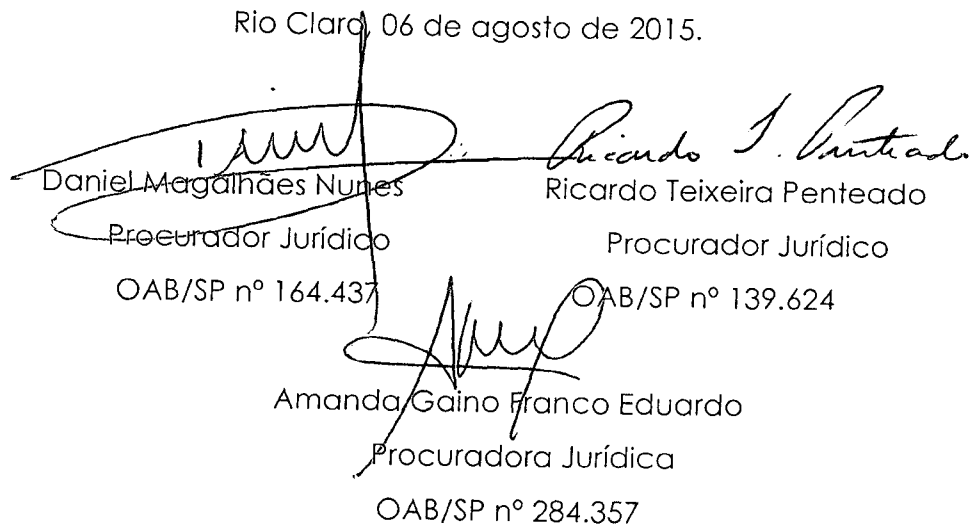 Rio Claro, 06 de agosto de 2015.
Ricardo T. Penteado
Daniel Magalhães Nunes
Procurador Jurídico
OAB/SP nº 164.437
Ricardo Teixeira Penteado
Procurador Jurídico
OAB/SP nº 139.624
Amanda Gaino Franco Eduardo
Procuradora Jurídica
OAB/SP nº 284.357